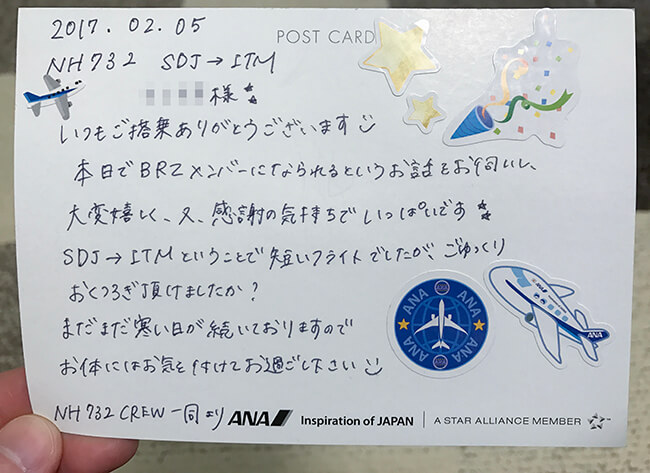 2017.02.05
POST CARD
NH732 SDJ→ITM
様
いつもご搭乗ありがとうございます
本日でBRZメンバーになられるというお話をお伺いし、
大変嬉しく、又、感謝の気持ちでいっぱいです
SDJ→ITMということで短いフライトでしたが、ごゆっくり
おくつろぎ頂けましたか?
まだまだ寒い日が続いておりますので
お体にはお気を付けてお過ごし下さい
ANA
ANA
ANA
ANA
ANA
NH732 CREW一同より
ANA Inspiration of JAPAN A STAR ALLIANCE MEMBER